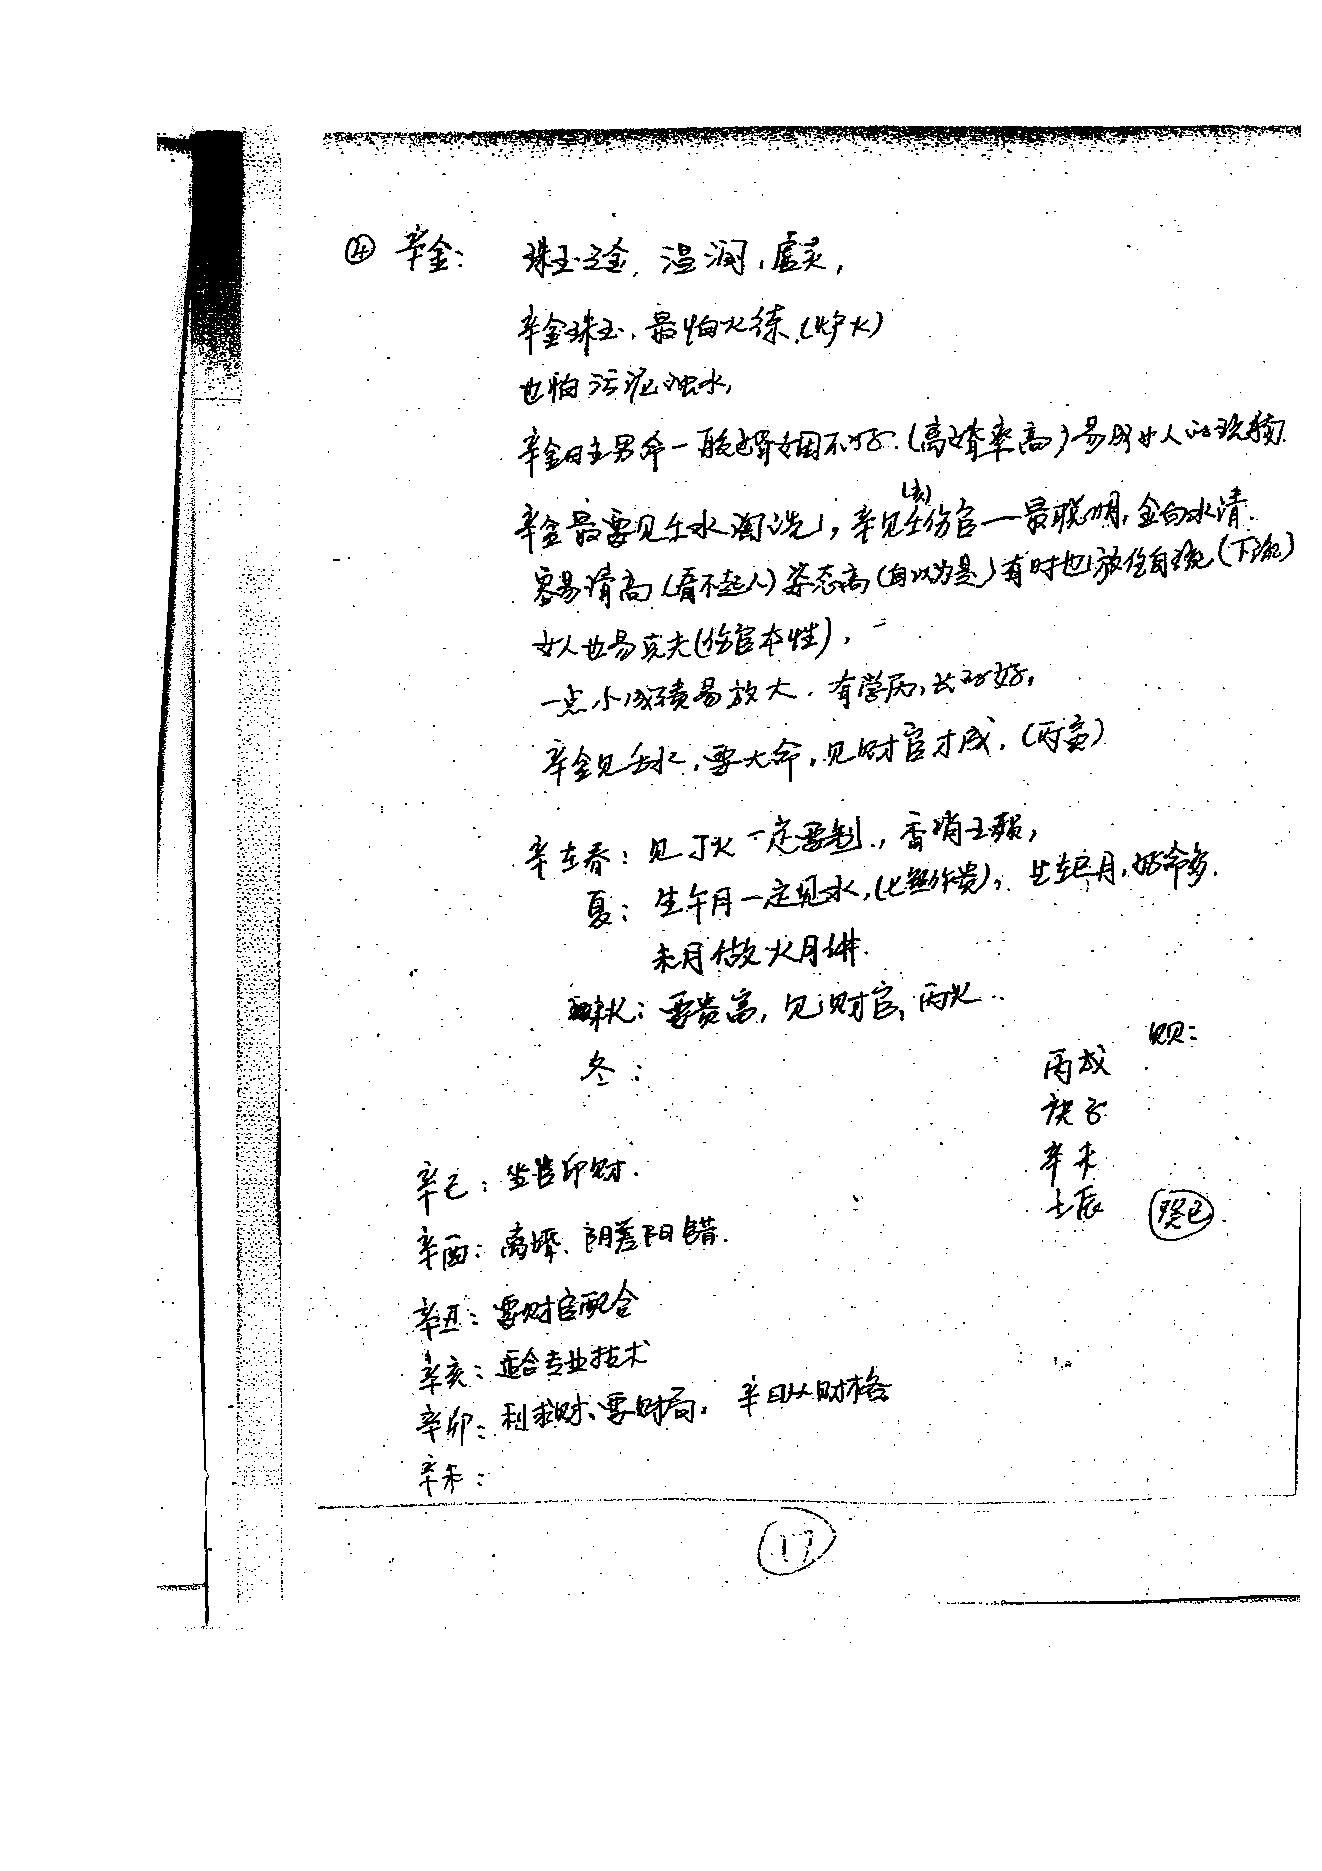 ④ 辛金： 珠玉之金，温润，虚灵，
辛金珠玉，最怕火练，(炉火)
也怕污泥浊水，
辛金日主男命一般婚姻不好．(离婚率高)易成女人的
辛金最要见壬水淘洗，辛见壬伤官一最聪明，金白水清．
容易清高(看不起人)姿态高(自以为是)有时也放任自流(下流)
女人也易克夫(伤官本性)，
一点小成绩易放大．有学历，
辛金见壬水，要大命，见财官才成．(丙寅)
辛在春：见丁火一定要制，
夏：生午月一定见水，，生在巳月，好命多．
未月做火月讲．
秋：要贵富，见财官，丙火．
冬：
坝：
丙戌
庚子
辛未
壬辰 癸巳
辛巳：坐官印财．
辛酉：离婚、阴差阳错．
辛丑：要财官配合
辛亥：适合专业技术
辛卯：利求财、要财局． 辛日从财格
辛未：
17